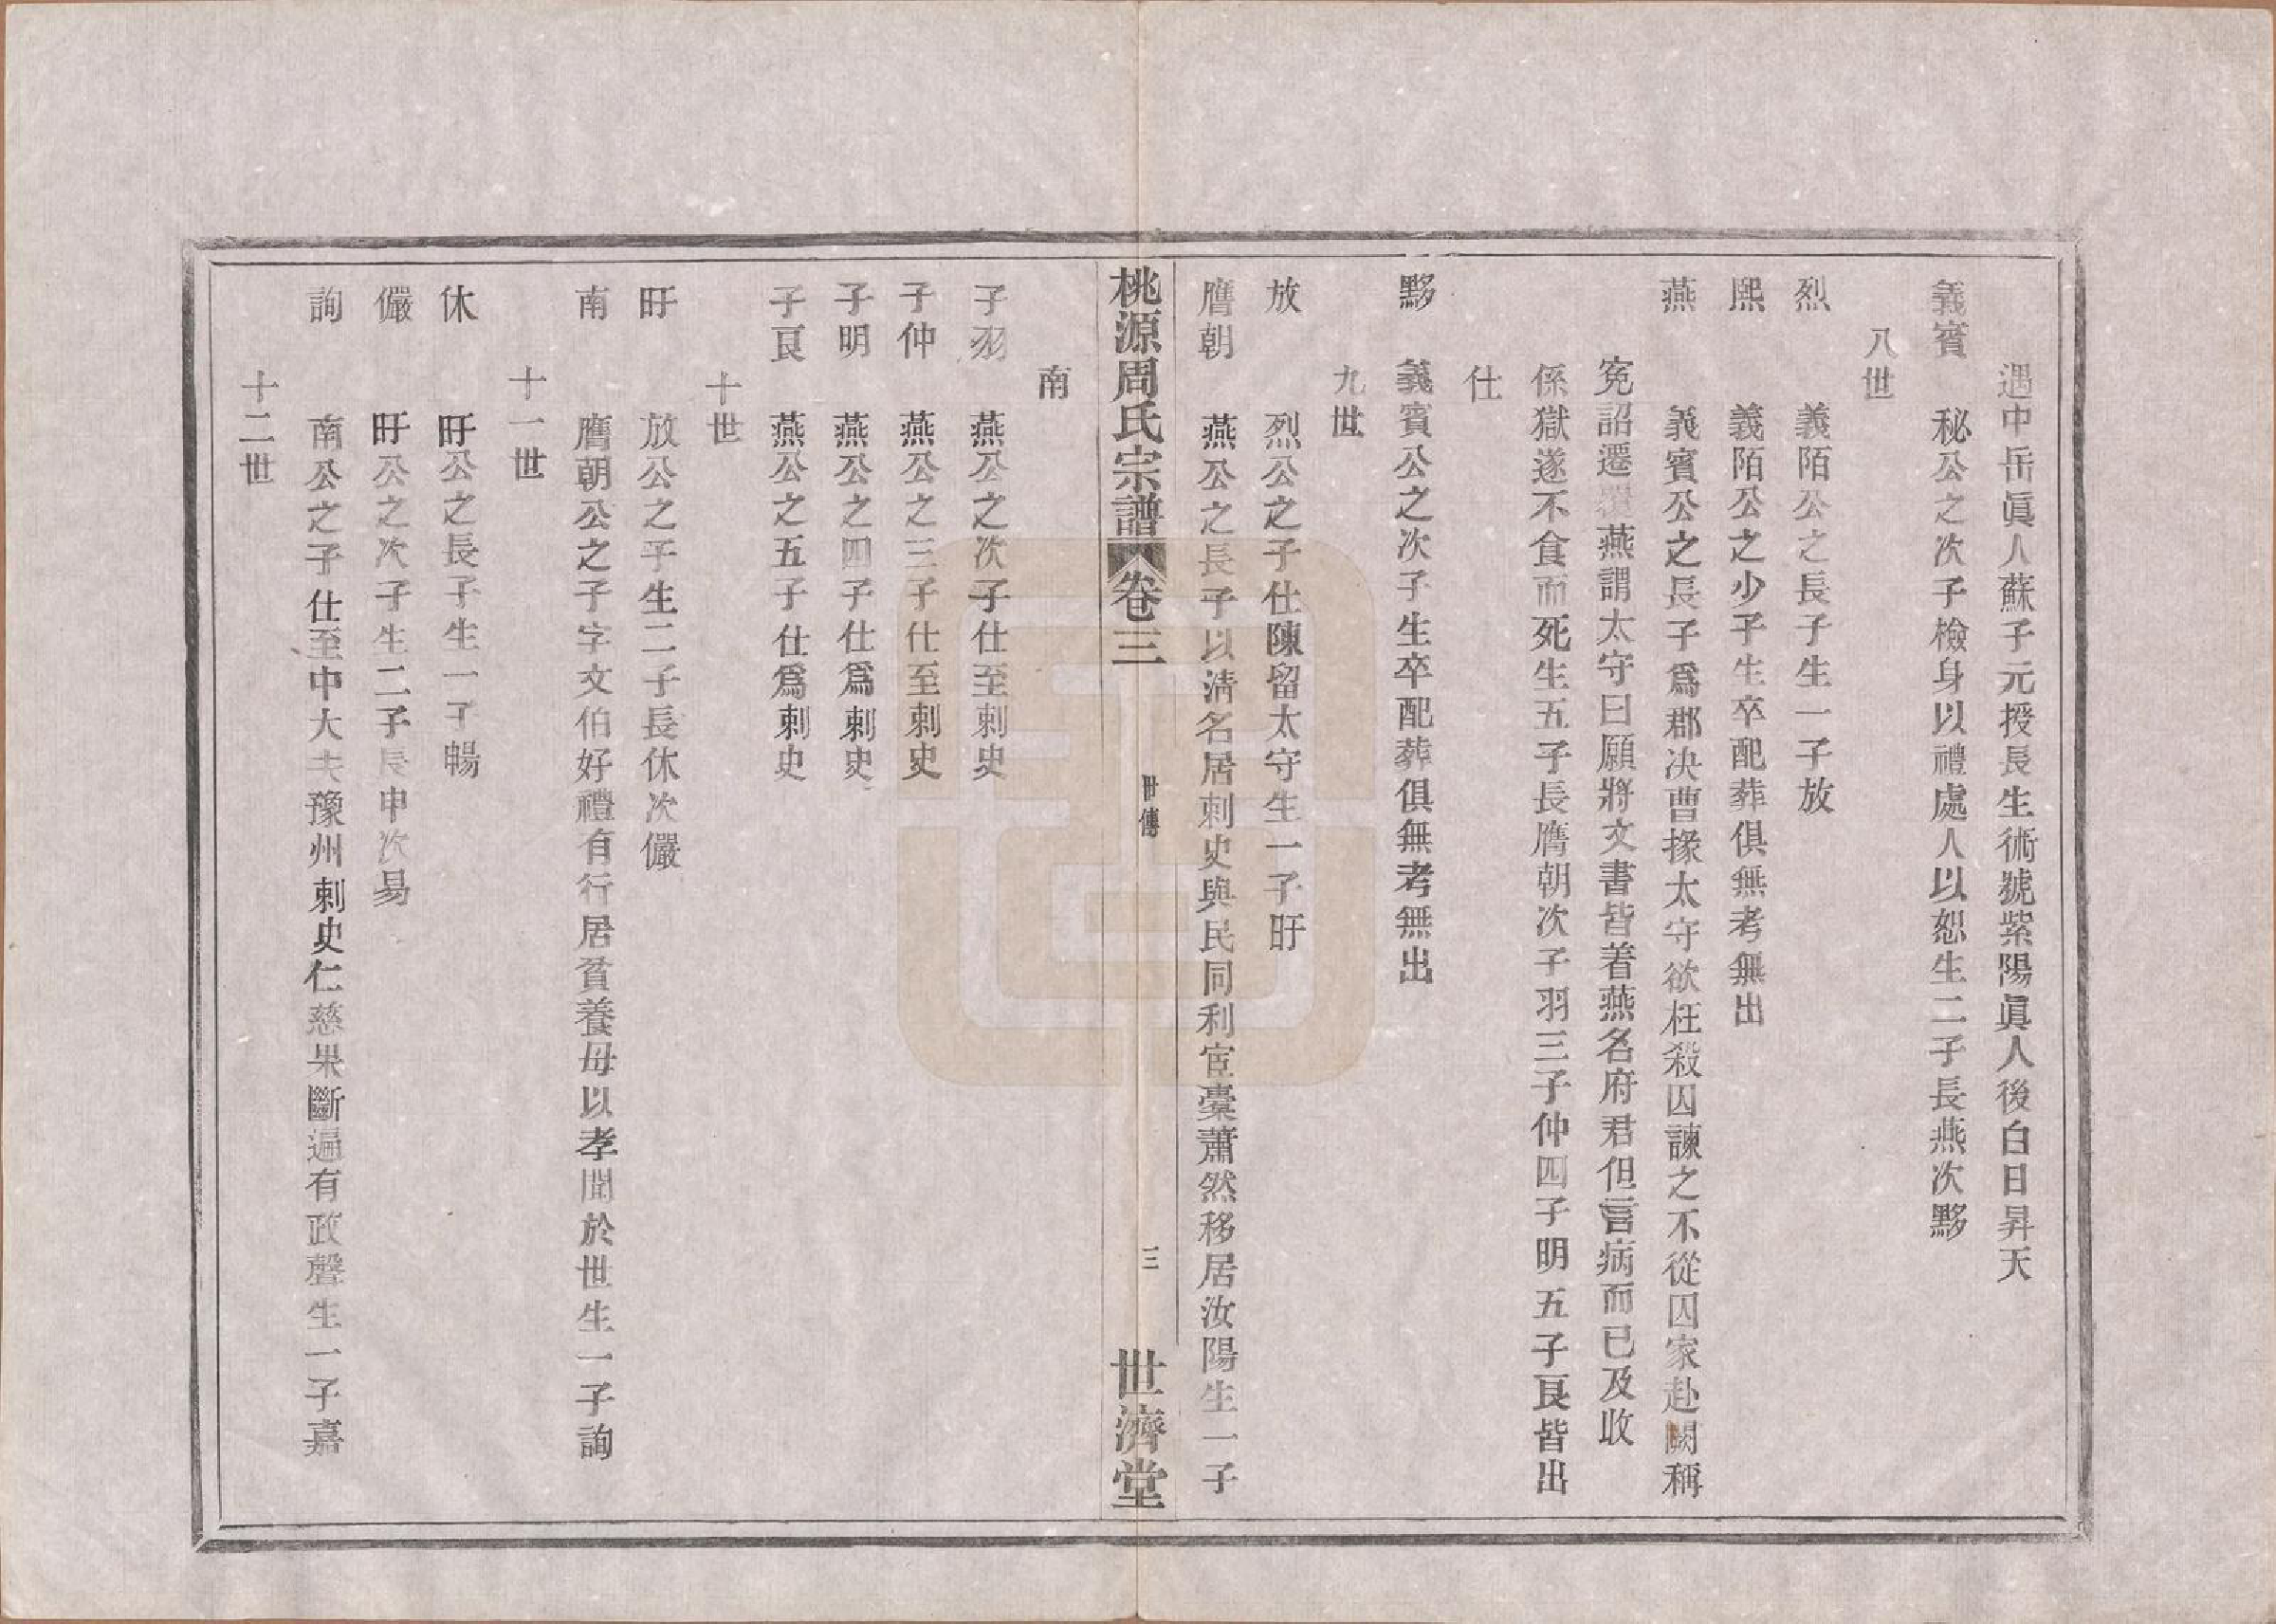 遇中岳眞人蘇子元授長生術號紫陽眞人後白日昇天
義賓　秘公之次子檢身以禮處人以恕生二子長燕次黟
八世
烈　義陌公之長子生一子放
熙　義陌公之少子生卒配葬俱無考無出
燕　義賓公之長子爲郡决曹掾太守欲枉殺囚諫之不從囚家赴闕稱
寃詔遷覆燕謂太守曰願將文書皆着燕名府君但言病而已及收
係獄遂不食而死生五子長膺朝次子羽三子仲四子明五子良皆出
仕
黟　義賓公之次子生卒配葬俱無考無出
九世
放　烈公之子仕陳留太守生一子旰
膺朝　燕公之長子以清名居刺史與民同利宦橐蕭然移居汝陽生一子
桃源周氏宗譜　卷三　世傳　三　世濟堂
南
子羽　燕公之次子仕至刺史
子仲　燕公之三子仕至刺史
子明　燕公之四子仕爲刺史
子良　燕公之五子仕爲刺史
十世
旰　放公之子生二子長休次儼
南　膺朝公之子字文伯好禮有行居貧養母以孝聞於世生一子詢
十一世
休　旰公之長子生一子暢
儼　旰公之次子生二子長申次易
詢　南公之子仕至中大夫豫州刺史仁慈果斷遍有政聲生一子嘉
十二世